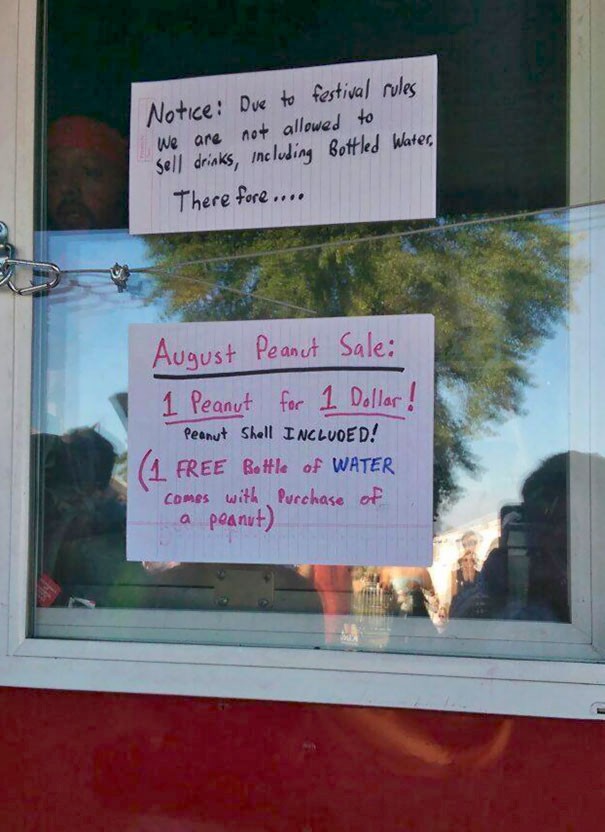 Notice: Due to festival rules
we are not allowed to
sell drinks, including Bottled Water.
Therefore....
August Peanut Sale:
1 Peanut for 1 Dollar!
Peanut Shell INCLUDED!
(1 FREE Bottle of WATER
comes with Purchase of
a peanut)